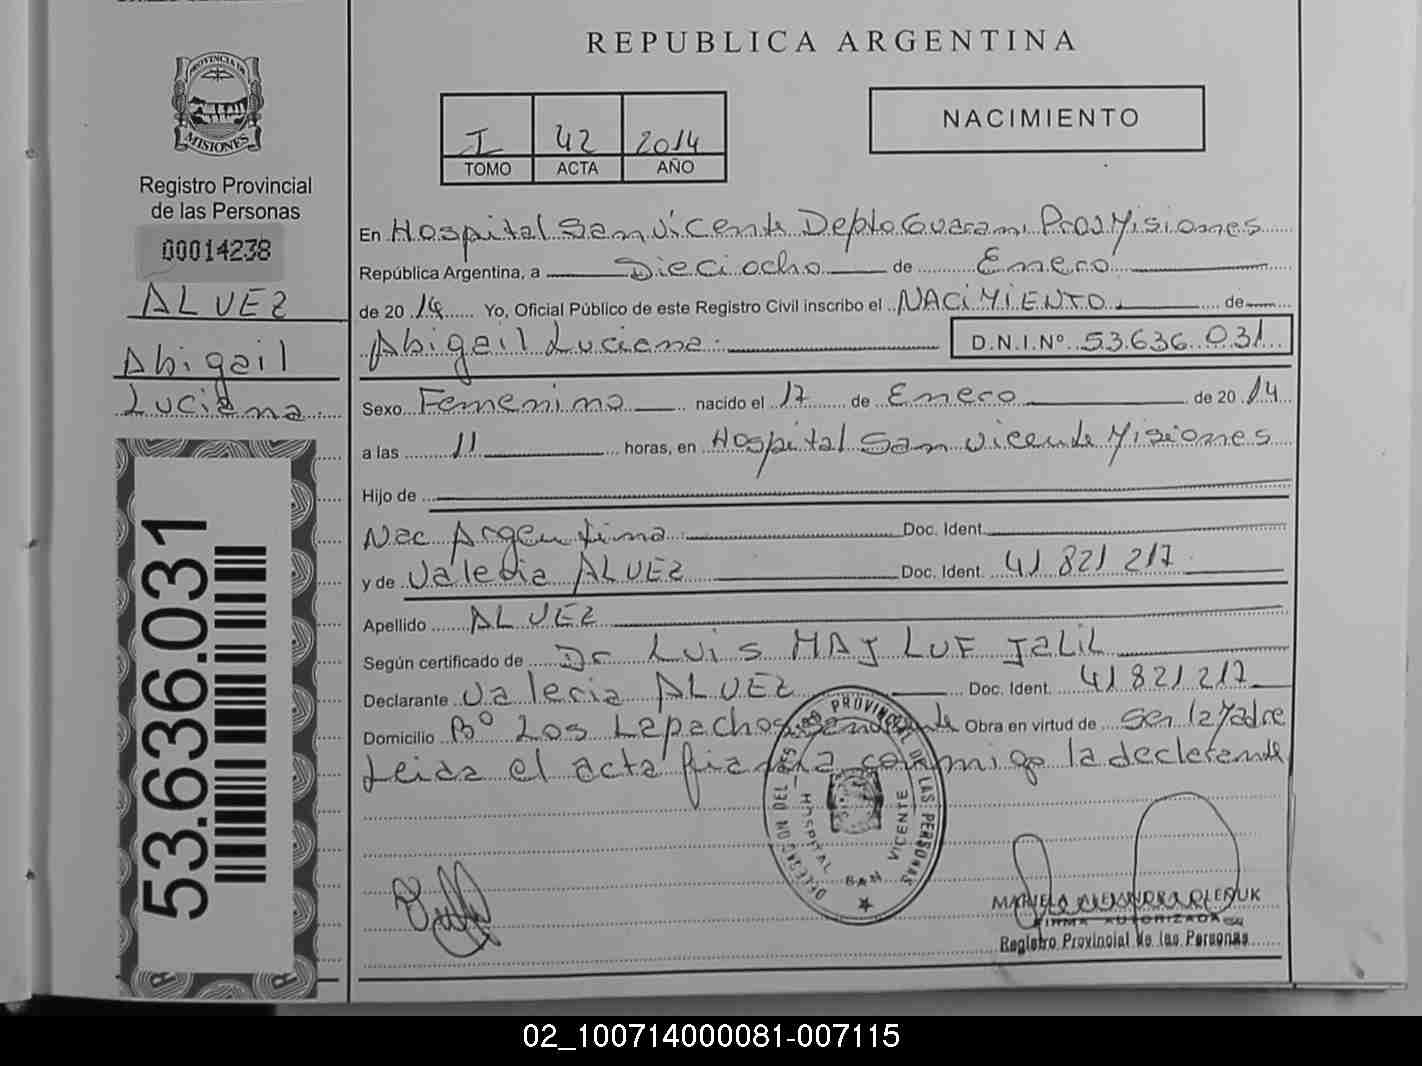 REPUBLICA ARGENTINA
PROVINCIA DE
MISIONES
Registro Provincial
de las Personas
00014238
ALVEZ
Abigail
Luciana
53.636.031
I 42 2014
TOMO ACTA AÑO
NACIMIENTO
En Hospital San Vicente Depto Guarani Prov Misiones
República Argentina, a Dieciocho de Enero
de 2014 Yo, Oficial Público de este Registro Civil inscribo el NACIMIENTO de
Abigail Luciana. D.N.I.Nº 53.636.031
Sexo Femenino nacido el 17 de Enero de 2014
a las 11 horas, en Hospital San Vicente Misiones
Hijo de
Nac Argentina Doc. Ident.
y de Valeria ALVEZ Doc. Ident. 41 821 217
Apellido ALVEZ
Según certificado de Dr LUIS MAJLUF JALIL
Declarante Valeria ALVEZ Doc. Ident. 41 821 217
Domicilio Bº Los Lapachos San Vicente Obra en virtud de Ser la Madre
Leida el acta firma conmigo la declarante
DELEGACION DEL REG PROVINCIAL DE LAS PERSONAS
HOSPITAL SAN VICENTE
FIRMA AUTORIZADA
Registro Provincial de las Personas
02_100714000081-007115